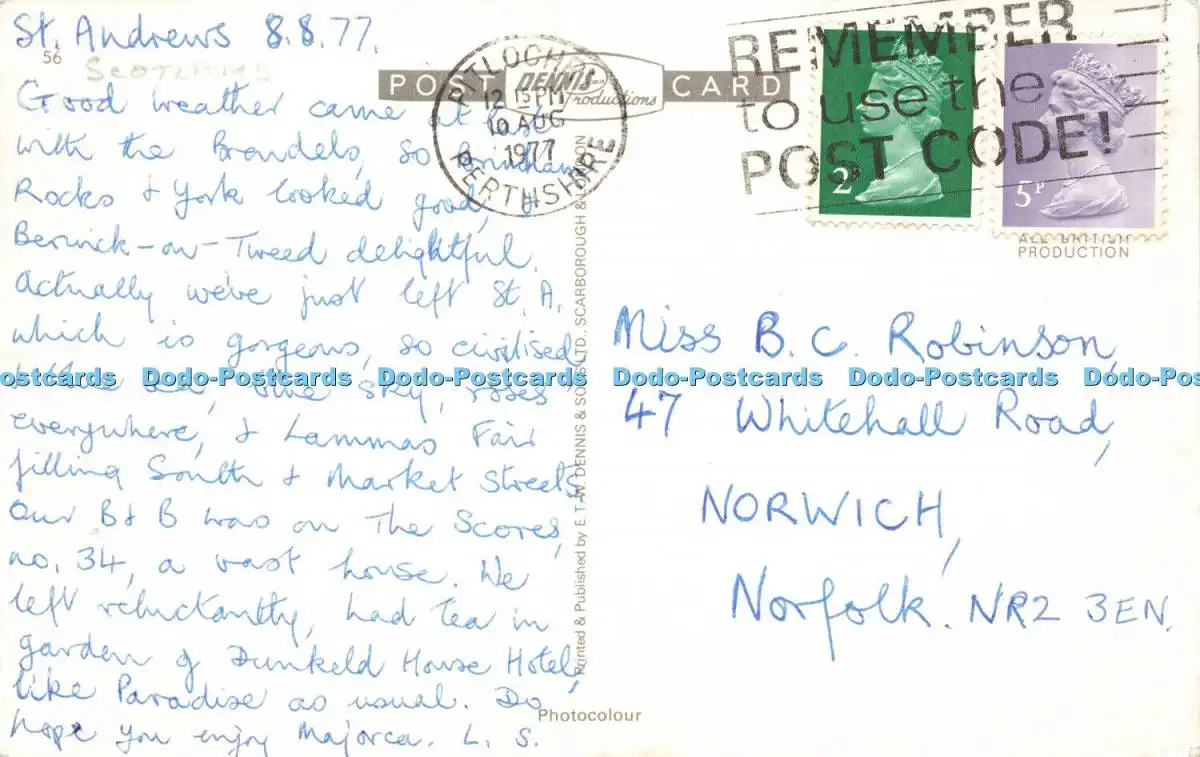 St. Andrews 8.8.77.
56
SCOTLAND
Good weather came at last
with the Brandels, so Brimham
Rocks & York looked good, &
Berwick-on-Tweed delightful.
Actually we've just left St. A.
which is gorgeous, so civilised,
sea, blue sky, roses
everywhere, & Lammas Fair
filling South & Market Streets.
Our B & B was on The Scores,
no. 34, a vast house. We
left reluctantly, had tea in
garden of Dunkeld House Hotel,
like Paradise as usual. Do
hope you enjoy Majorca. L. S.
POST CARD
DENNIS
Productions
PITLOCHRY
12 15 PM
10 AUG
1977
PERTHSHIRE
REMEMBER
to use the
POST CODE!
2
5P
ALL BRITISH
PRODUCTION
Printed & Published by E. T. W. DENNIS & SONS LTD., SCARBOROUGH & LONDON
Miss B. C. Robinson,
47 Whitehall Road,
NORWICH,
Norfolk. NR2 3EN.
Photocolour
Dodo-Postcards Dodo-Postcards Dodo-Postcards Dodo-Postcards Dodo-Postcards